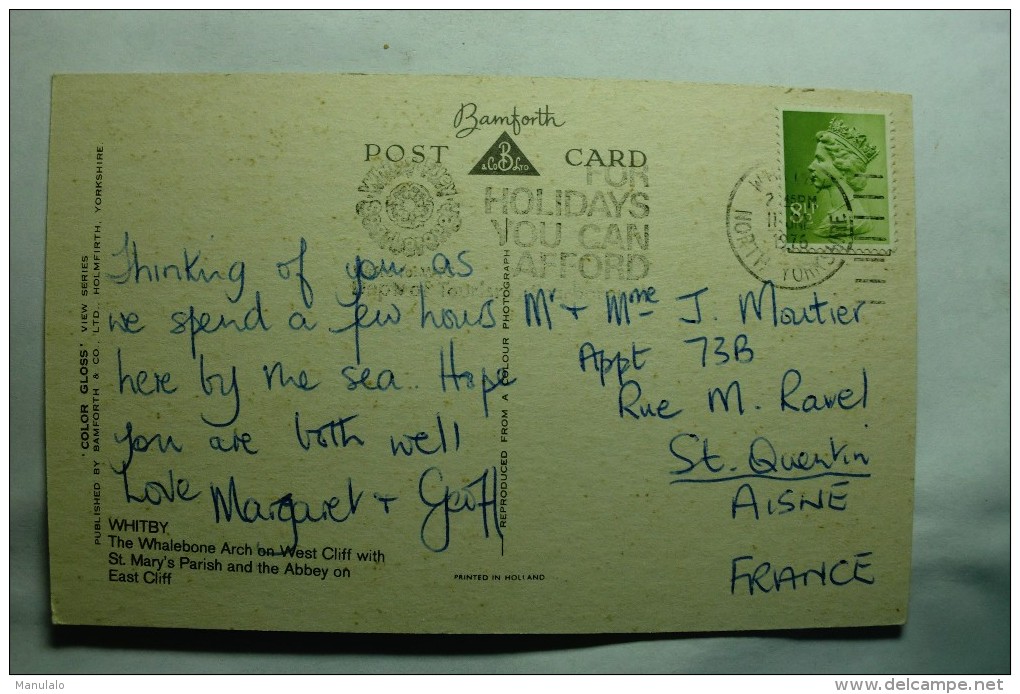 Bamforth
POST CARD
& Co B LTD
FOR
HOLIDAYS
YOU CAN
AFFORD
NORTH YORKSHIRE
1976
8½P
Thinking of you as
we spend a few hours
here by the sea.. Hope
you are both well
Love Margaret + Geoff
Mr + Mme J. Moutier
Appt 73B
Rue M. Ravel
St. Quentin
AISNE
FRANCE
WHITBY
The Whalebone Arch on West Cliff with
St. Mary's Parish and the Abbey on
East Cliff
PRINTED IN HOLLAND
'COLOR GLOSS' VIEW SERIES
PUBLISHED BY BAMFORTH & CO., LTD. HOLMFIRTH, YORKSHIRE
REPRODUCED FROM A COLOUR PHOTOGRAPH
Manulalo
www.delcampe.net